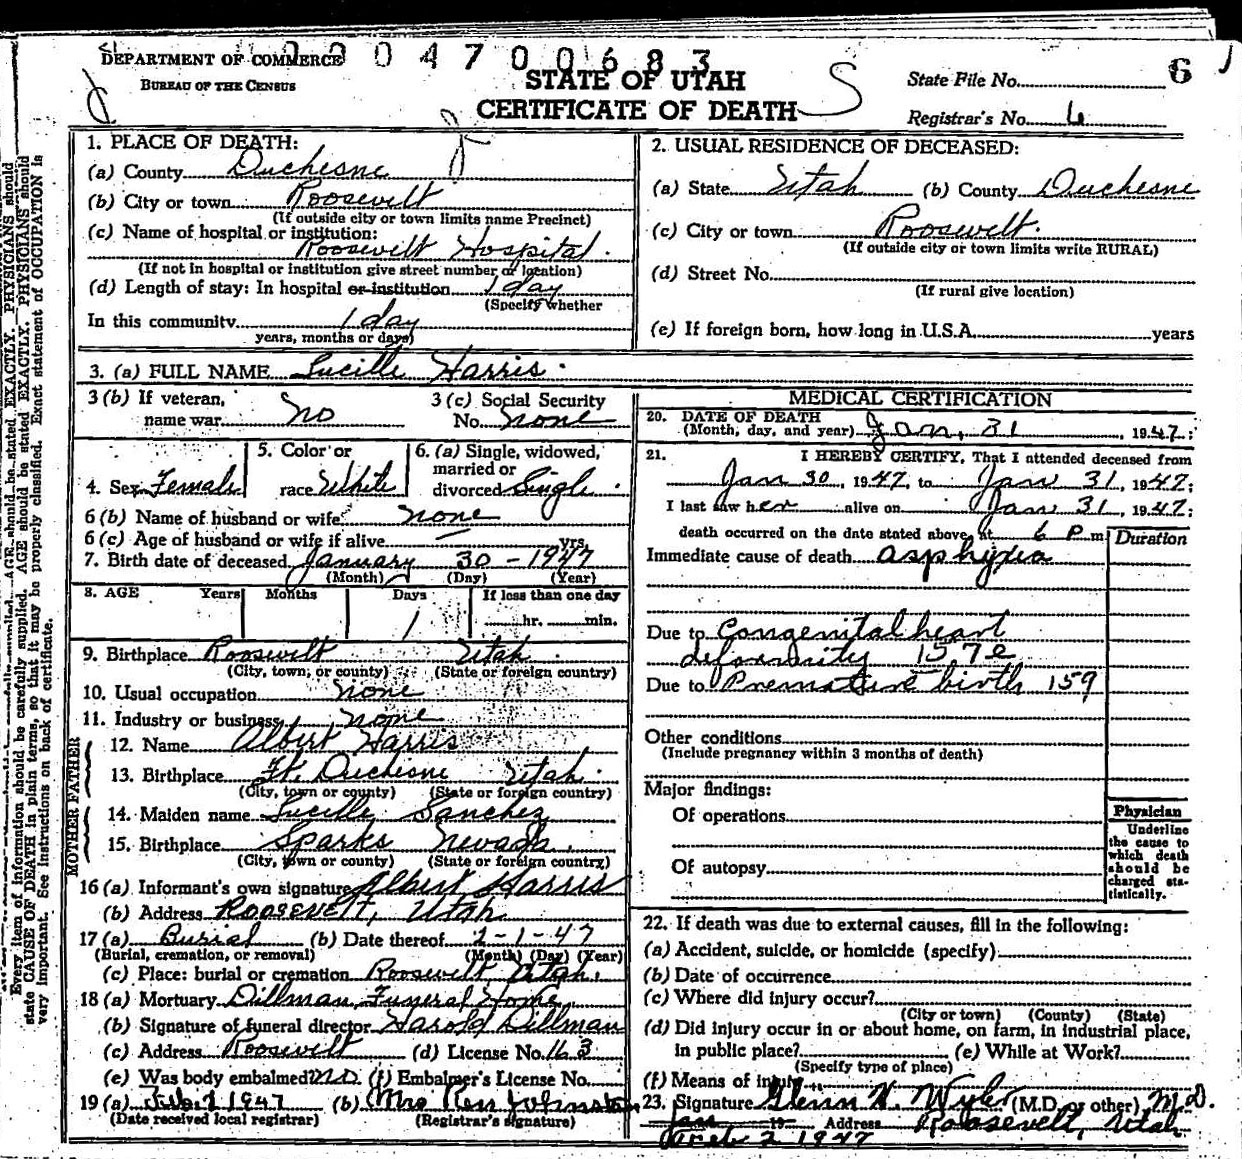 DEPARTMENT OF COMMERCE
004700683
6
BUREAU OF THE CENSUS
STATE OF UTAH
CERTIFICATE OF DEATH
S
State File No.
Registrar's No. 6
1. PLACE OF DEATH:
(a) County Duchesne
(b) City or town Roosevelt
(If outside city or town limits name Precinct)
(c) Name of hospital or institution:
Roosevelt Hospital.
(If not in hospital or institution give street number or location)
(d) Length of stay: In hospital or institution 1 day
(Specify whether
In this community 1 day
years, months or days)
2. USUAL RESIDENCE OF DECEASED:
(a) State Utah (b) County Duchesne
(c) City or town Roosevelt.
(If outside city or town limits write RURAL)
(d) Street No.
(If rural give location)
(e) If foreign born, how long in U.S.A. years
3. (a) FULL NAME Lucille Harris
3 (b) If veteran,
name war. No
3 (c) Social Security
No. none
4. Sex Female
5. Color or
race White
6. (a) Single, widowed,
married or
divorced Single
6 (b) Name of husband or wife none
6 (c) Age of husband or wife if alive — yrs.
7. Birth date of deceased January 30 - 1947
(Month) (Day) (Year)
8. AGE Years Months Days If less than one day
1 hr. min.
9. Birthplace Roosevelt Utah
(City, town, or county) (State or foreign country)
10. Usual occupation none
11. Industry or business none
FATHER
12. Name Albert Harris
13. Birthplace Ft. Duchesne Utah.
(City, town or county) (State or foreign country)
MOTHER
14. Maiden name Lucille Sanchez
15. Birthplace Sparks Nevada.
(City, town or county) (State or foreign country)
16 (a) Informant's own signature Albert Harris
(b) Address Roosevelt, Utah
17 (a) Burial (b) Date thereof 2-1-47
(Burial, cremation, or removal) (Month) (Day) (Year)
(c) Place: burial or cremation Roosevelt Utah.
18 (a) Mortuary Dillman Funeral Home
(b) Signature of funeral director Harold Dillman
(c) Address Roosevelt (d) License No. 163
(e) Was body embalmed? no. (f) Embalmer's License No.
19 (a) Feb. 1 1947 (b) Mrs Ren Johnston
(Date received local registrar) (Registrar's signature)
MEDICAL CERTIFICATION
20. DATE OF DEATH
(Month, day, and year) Jan, 31, 1947;
21. I HEREBY CERTIFY, That I attended deceased from
Jan 30, 1947, to Jan 31, 1947;
I last saw her alive on Jan 31, 1947;
death occurred on the date stated above, at 6 P m
Duration
Immediate cause of death asphyxia
Due to Congenital heart
deformity 157e
Due to Premature birth 159
Other conditions
(Include pregnancy within 3 months of death)
Major findings:
Of operations
Of autopsy
Physician
Underline
the cause to
which death
should be
charged sta-
tistically.
22. If death was due to external causes, fill in the following:
(a) Accident, suicide, or homicide (specify)
(b) Date of occurrence
(c) Where did injury occur?
(City or town) (County) (State)
(d) Did injury occur in or about home, on farm, in industrial place,
in public place? (e) While at Work?
(Specify type of place)
(f) Means of injury
23. Signature Glenn H. Wyler (M.D. or other) M.D.
19 Address Roosevelt, Utah
Feb 2 1947
Every item of information should be carefully supplied. AGE should be stated EXACTLY. PHYSICIANS should
state CAUSE OF DEATH in plain terms, so that it may be properly classified. Exact statement of OCCUPATION is
very important. See instructions on back of certificate.